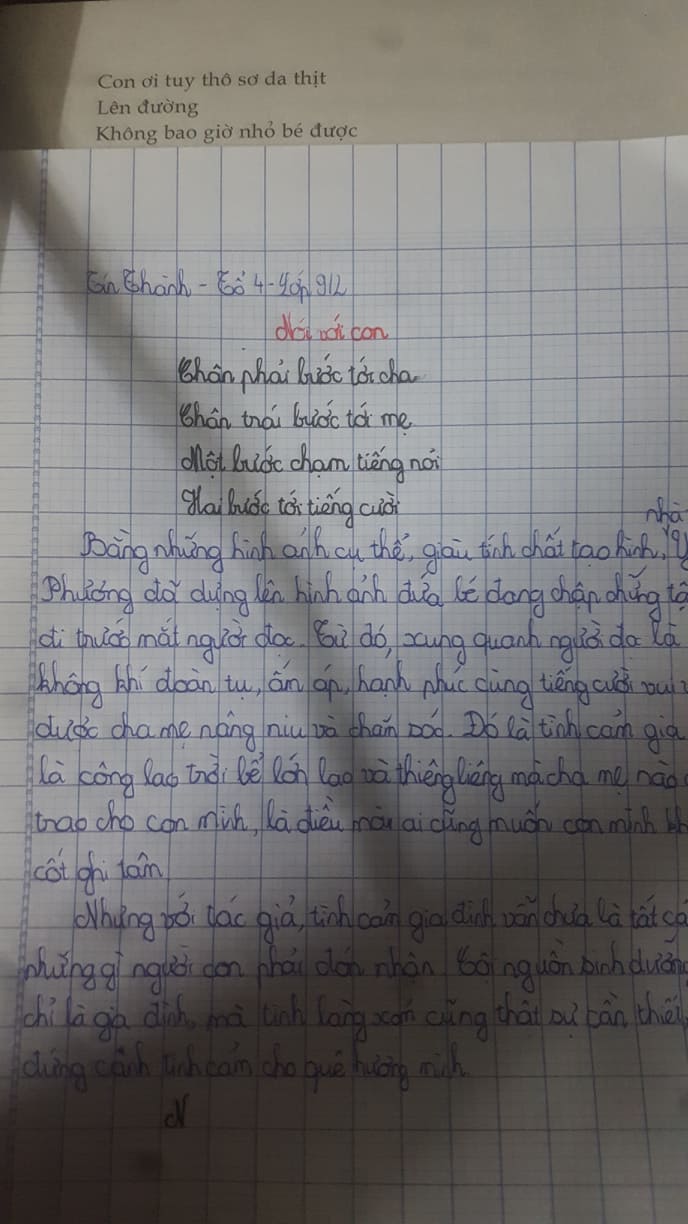 Con ơi tuy thô sơ da thịt
Lên đường
Không bao giờ nhỏ bé được
Tín Thành - Tổ 4 - Lớp 9/2
Nói với con
Chân phải bước tới cha
Chân trái bước tới mẹ
Một bước chạm tiếng nói
Hai bước tới tiếng cười
nhà
Bằng những hình ảnh cụ thể, giàu tính chất tạo hình, Y
Phương đã dựng lên hình ảnh đứa bé đang chập chững tậ
đi trước mắt người đọc. Từ đó, xung quanh người đọc là
không khí đoàn tụ, ấm áp, hạnh phúc cùng tiếng cười vui
được cha mẹ nâng niu và chăm sóc. Đó là tình cảm gia
là công lao trời bể lớn lao và thiêng liêng mà cha mẹ nào
trao cho con mình, là điều mà ai cũng muốn con mình kh
cốt ghi tâm
Nhưng với tác giả, tình cảm gia đình vẫn chưa là tất cả
những gì người con phải đón nhận. Bởi nguồn sinh dưỡng
chỉ là gia đình, mà tình làng xóm cũng thật sự cần thiết
dựng cảnh tình cảm cho quê hương mình.
N